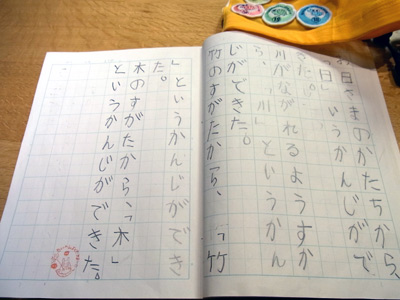 お日さまのかたちから、
「日」というかんじがで
きた。
川がながれるようすか
ら、「川」というかん
じができた。
竹のすがたから、「竹
」というかんじができ
た。
木のすがたから、「木」
というかんじができた。